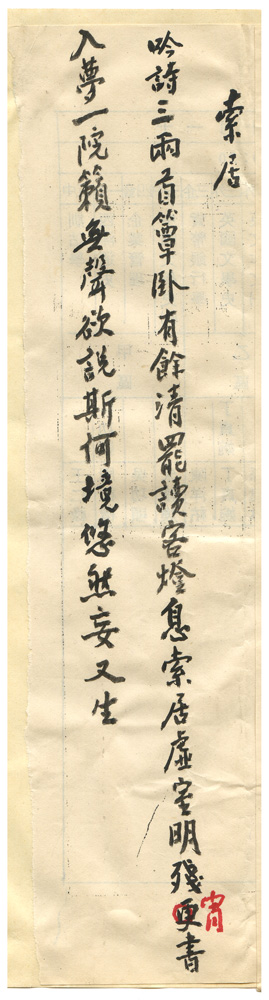 索居
吟詩三兩首簟臥有餘清罷讀客燈息索居虛室明殘更書
宵
入夢一院籟無聲欲說斯何境悠然妄又生